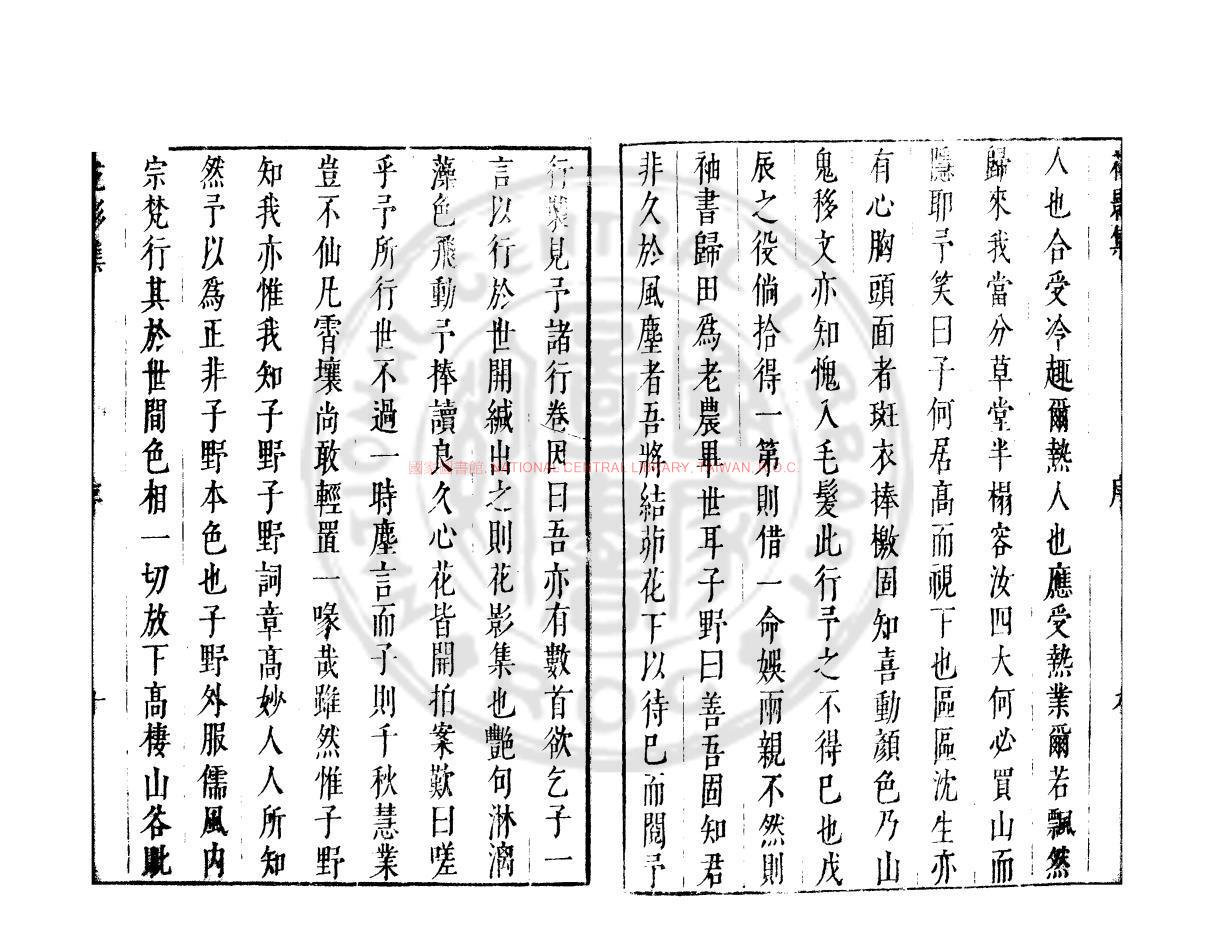 人也合受冷趣爾熱人也應受熱業爾若飄然
歸來我當分草堂半榻容汝四大何必買山而
隱耶予笑曰子何居高而視下也區區沈生亦
有心胸頭面者斑衣捧檄固知喜動顏色乃山
鬼移文亦知愧入毛髮此行予之不得已也戊
辰之役倘拾得一第則借一命娛兩親不然則
袖書歸田為老農畢世耳子野曰善吾固知君
非久於風塵者吾將結茆花下以待已而閱予
行裝見予諸行卷因曰吾亦有數首欲乞子一
言以行於世開緘出之則花影集也艷句淋漓
藻色飛動予捧讀良久心花皆開拍案歎曰嗟
乎予所行世不過一時塵言而子則千秋慧業
豈不仙凡霄壤尚敢輕置一喙哉雖然惟子野
知我亦惟我知子野子野詞章高妙人人所知
然予以為正非子野本色也子野外服儒風內
宗梵行其於世間色相一切放下高棲山谷
花影集 序
國家圖書館, NATIONAL CENTRAL LIBRARY, TAIWAN, R.O.C.
NATIONAL CENTRAL LIBRARY R.O.C.